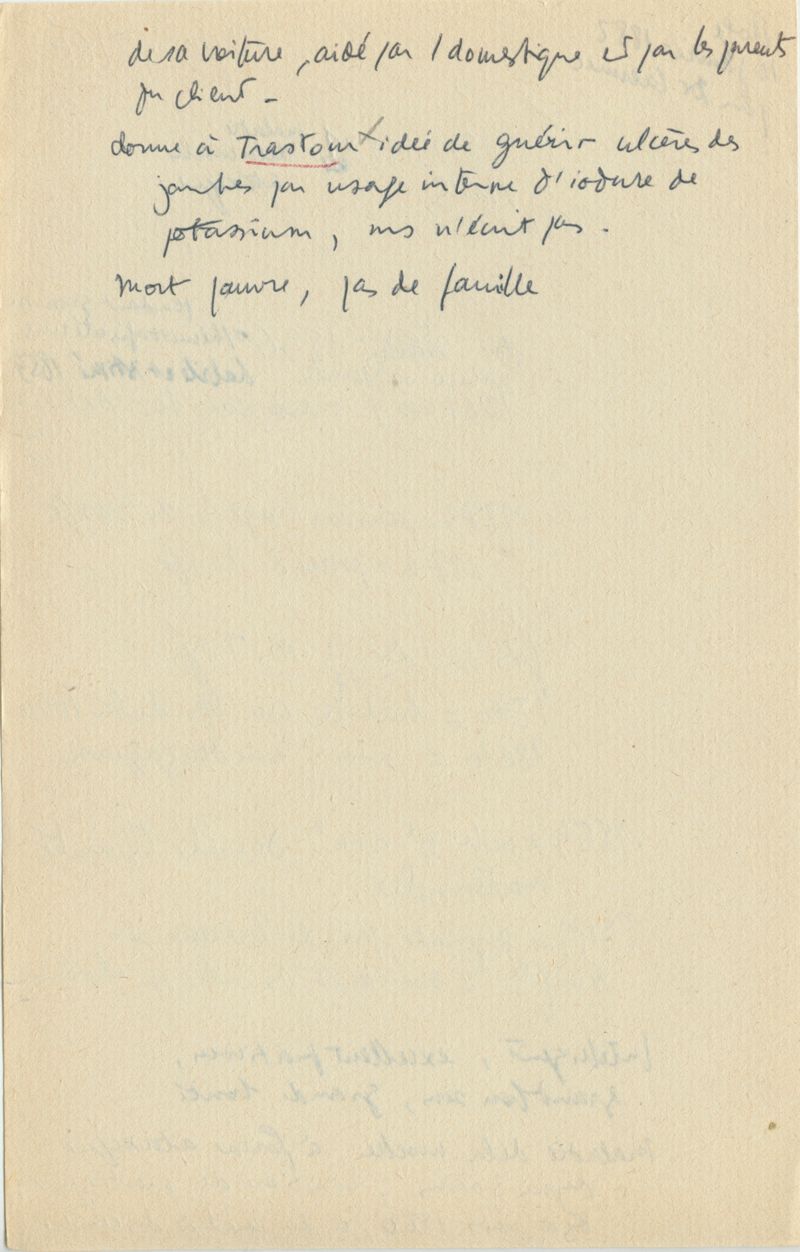 de sa voiture, aidé par l domestique et par les parents
du client -
donne à Trastour idée de guérir ulcères des
jambes par usage interne d'iodure de
potassium, ms n'écrit pas.
Mort pauvre, pas de famille